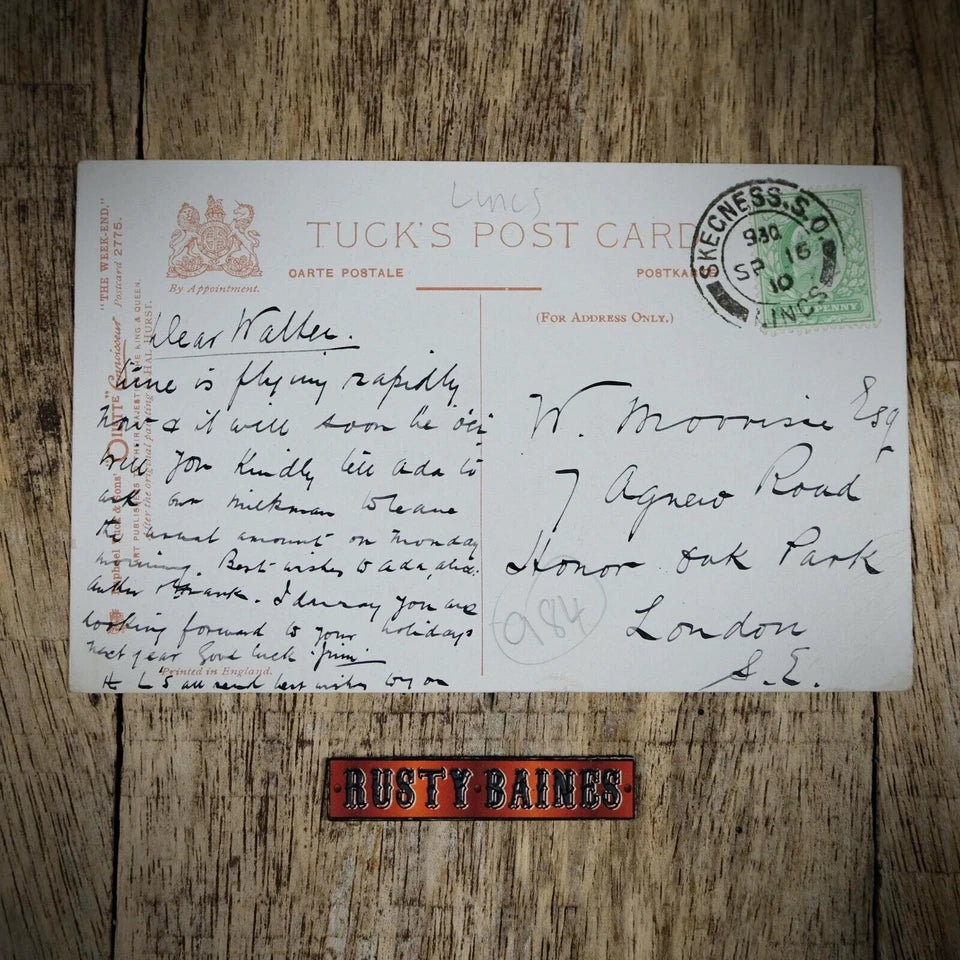 Lincs
TUCK'S POST CARD
CARTE POSTALE
POSTKARTE
By Appointment.
(FOR ADDRESS ONLY.)
SKEGNESS. S.O.
SP 16
10
LINCS
PENNY
"THE WEEK-END,"
Raphael Tuck & Sons' "OILETTE" Connoisseur Postcard 2775.
ART PUBLISHERS TO THEIR MAJESTIES THE KING & QUEEN.
After the original painting HAL HURST.
Dear Walter.
time is flying rapidly
now & it will soon be
will you kindly tell Ada to
ask our milkman to leave
the usual amount on Monday
morning. Best wishes to Ada,
& Frank. I daresay you are
looking forward to your holidays
next year Good luck Jim
H L S all send best wishes to you
Printed in England.
W. Morrisie Esq
7 Agnew Road
Honor Oak Park
London
S.E.
984
RUSTY BAINES